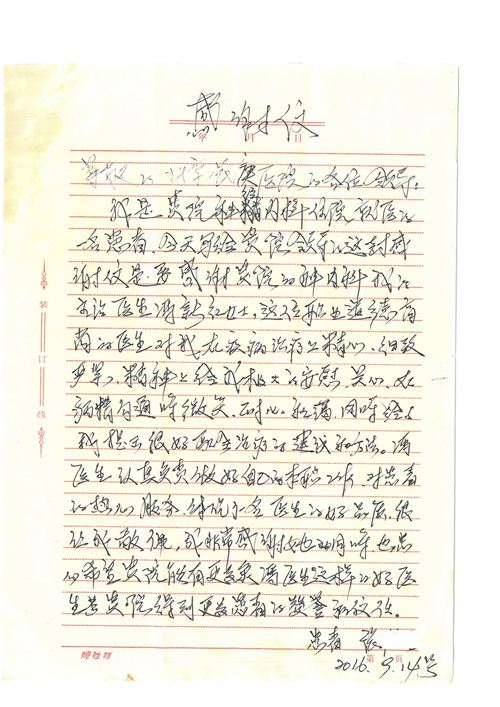 感谢信
年 月 日
尊敬的 医院的各位领导：
我是贵院神精内科住院就医的
一名患者，今天写给贵院领导的这封感
谢信是要感谢贵院的神内科我的
主治医生冯新红女士，这位职业道德高
尚的医生对我在疾病治疗上精心、细致
严谨、精神上给我极大的安慰、关心、
病情沟通时微笑、耐心、 同时给
我提出很好配合治疗的建议和方法。冯
医生认真负责做好自己的本职工作，对患者
的热心服务，体现了名医生的好品质，很
让我敬佩，我非常感谢她也同时也忠
心希望贵院能有更多象冯医生这样的好医
生，贵院得到更多患者的赞誉和信任。
患者 张
第 页
2016.9.14号
装
订
线